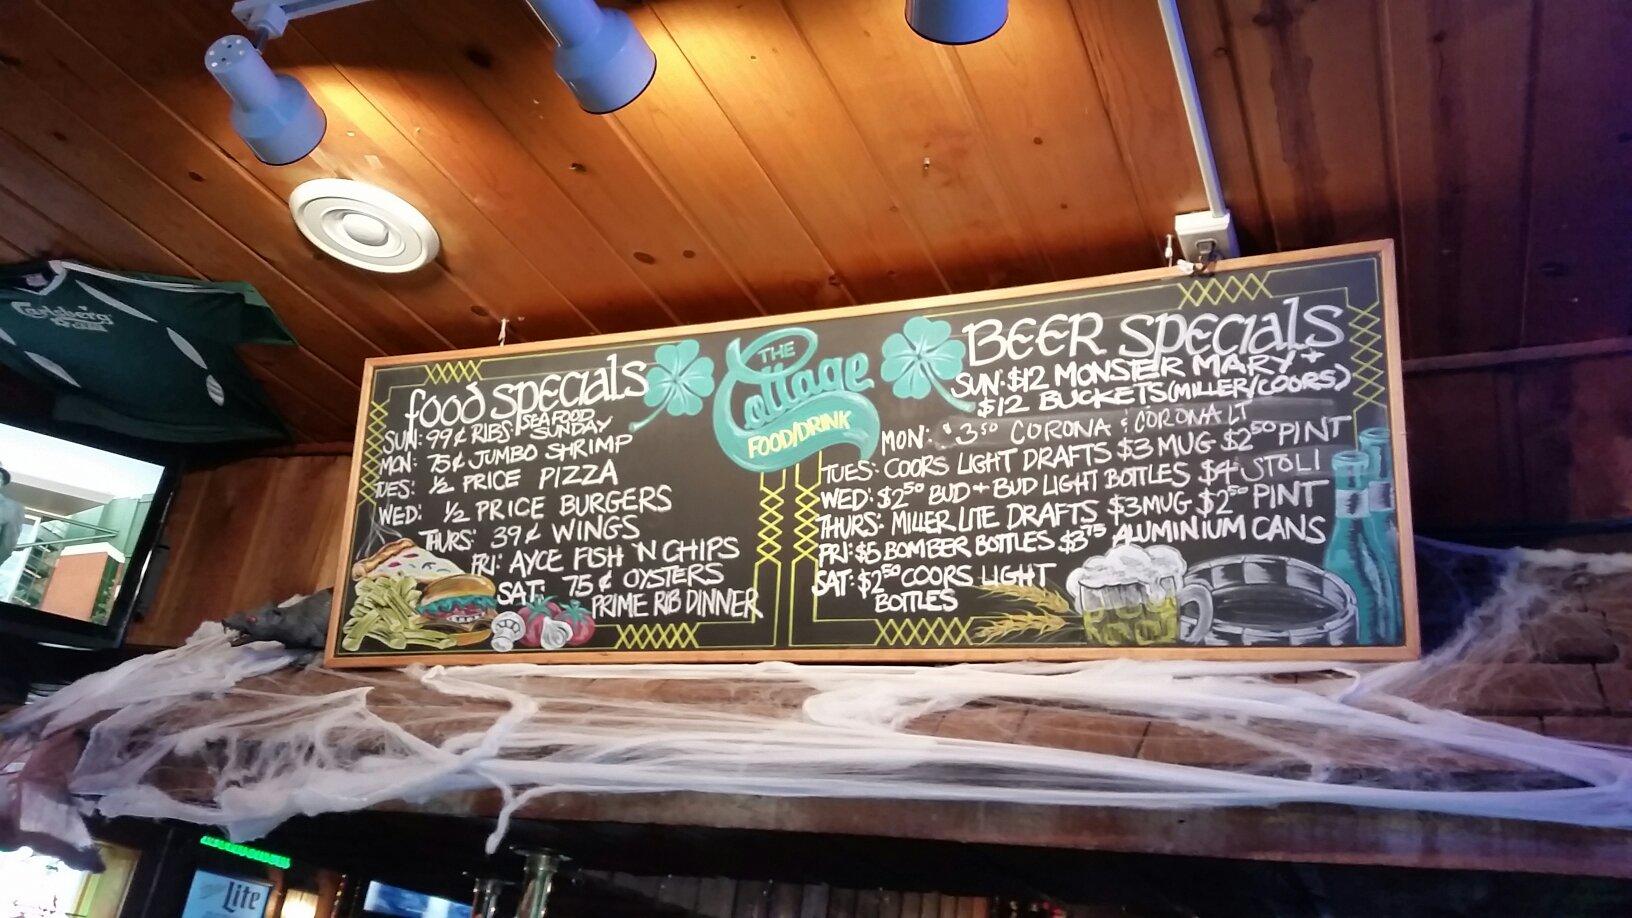 Carlsberg
food specials
SUN: 99¢ RIBS SEAFOOD SUNDAY
MON: 75¢ JUMBO SHRIMP
TUES: ½ PRICE PIZZA
WED: ½ PRICE BURGERS
THURS: 39¢ WINGS
FRI: AYCE FISH 'N CHIPS
SAT: 75¢ OYSTERS
PRIME RIB DINNER
THE
Cottage
FOOD/DRINK
BEER SPECIALS
SUN: $12 MONSTER MARY +
$12 BUCKETS (MILLER/COORS)
MON: $3.50 CORONA & CORONA LT
TUES: COORS LIGHT DRAFTS $3 MUG $2.50 PINT
WED: $2.50 BUD + BUD LIGHT BOTTLES $4 STOLI
THURS: MILLER LITE DRAFTS $3 MUG $2.50 PINT
FRI: $5 BOMBER BOTTLES $3.75 ALUMINIUM CANS
SAT: $2.50 COORS LIGHT
BOTTLES
Lite